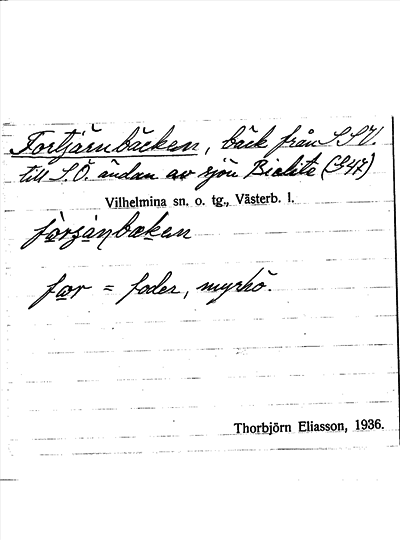 Fortjärnbäcken, bäck från S.S.V.
till S.Ö. ändan av sjön Bielite (S47)
Vilhelmina sn. o. tg., Västerb. l.
fàrʂànbæken
får = foder, myrhö.
Thorbjörn Eliasson, 1936.